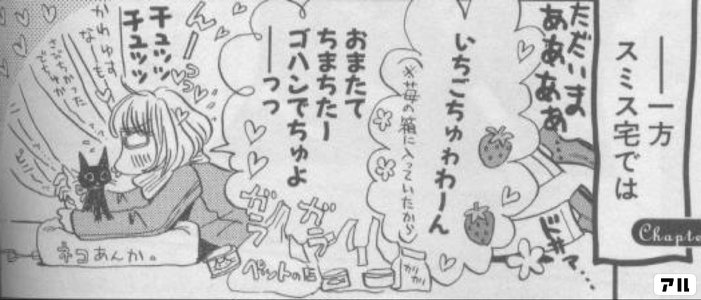 ――一方
スミス宅では
Chapte
ただいま
ああああ
ドサ…
いちごちゅわわーん
(※苺の箱に入っていたから)
おまたて
ちまちたー
ゴハンでちゅよ
――っっ
ガラ
ガラ
ガラ
ペットの店
カリカリ
んー
チュッッ
チュッッ
かわゆす
なーもし
さびちかった
でちゅか
ネコあんか。
アル